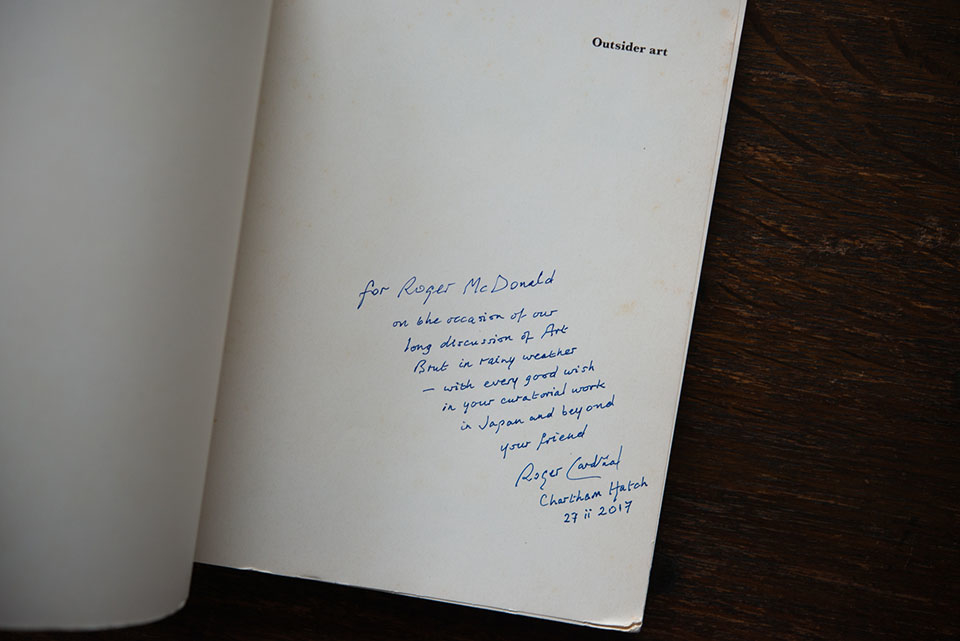 Outsider art
for Roger McDonald
on the occasion of our
long discussion of Art
Brut in rainy weather
– with every good wish
in your curatorial work
in Japan and beyond
your friend
Roger Cardinal
Chartham Hatch
27 ii 2017